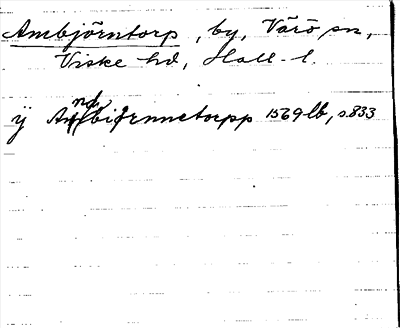 Ambjörntorp, by, Värö sn,
Viske hd, Hall. l.
ÿ Andbiernnetorpp 1569 lb, s. 833